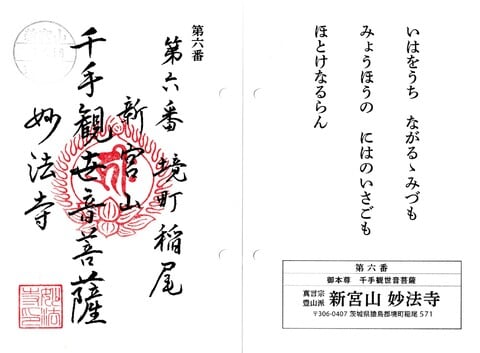 いはをうち　ながるゝみづも
みょうほうの　にはのいさごも
ほとけなるらん
第六番
御本尊　千手観世音菩薩
真言宗
豊山派
新宮山 妙法寺
〒306-0407 茨城県猿島郡境町稲尾 571
第六番
第六番 境町稲尾
新宮山
千手観世音菩薩
妙法寺